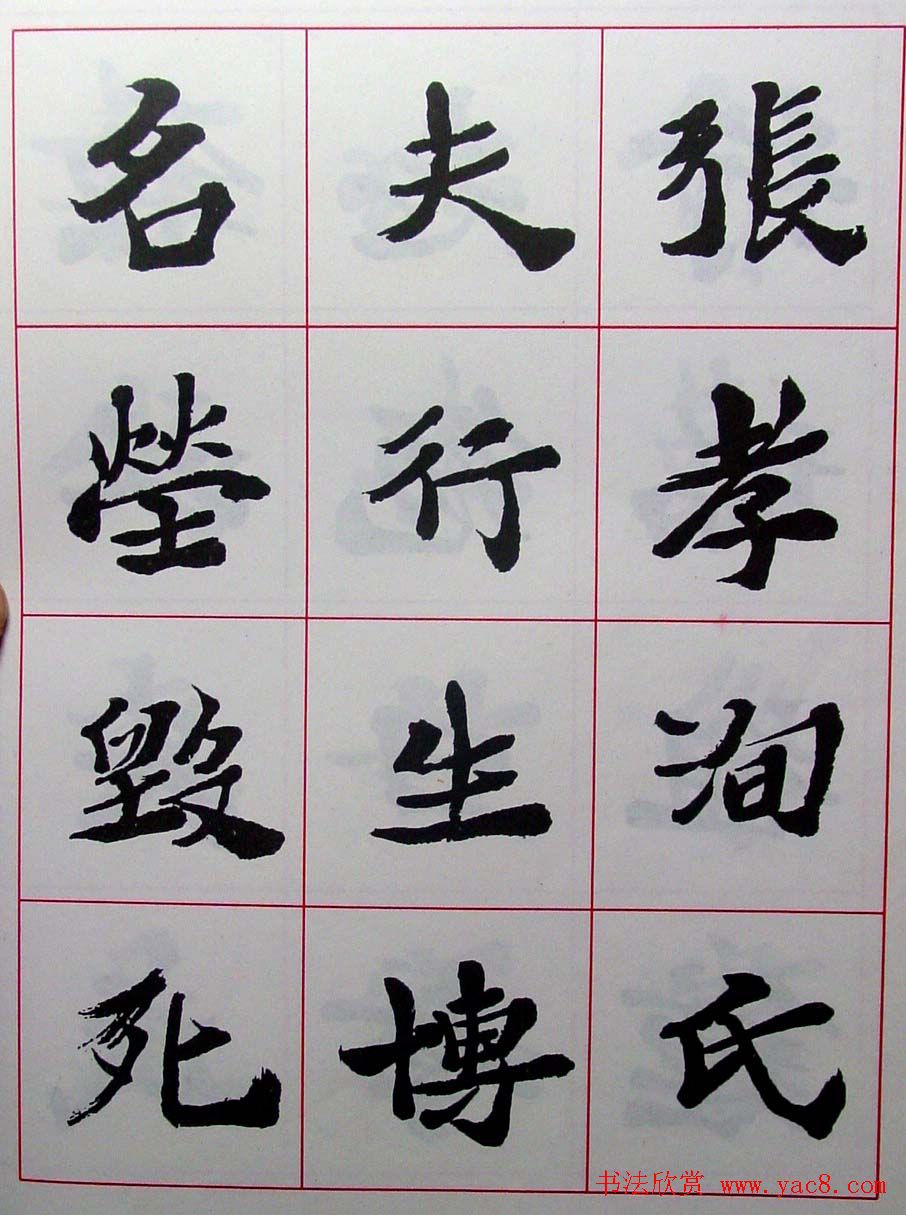 張孝洵氏
夫行生博
名塋毀死
书法欣赏 www.yac8.com